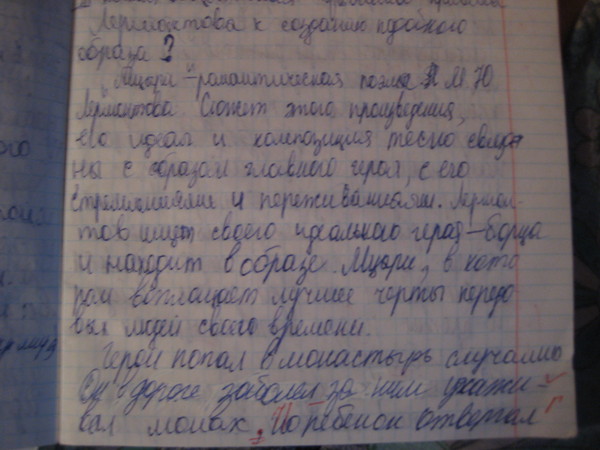 Лермонтова к созданию подобного
образа?
"Мцыри"-романтическая поэма М.Ю
Лермонтова. Сюжет этого произведения,
его идеал и композиция тесно связа
ны с образом главного героя, с его
стремлениями и переживаниями. Лермон-
тов ищет своего идеального героя-борца
и находит в образе Мцыри, в кото
ром воплощает лучшее черты передо
вых людей своего времени.
Герой попал в монастырь случайно
Он в дороге заболел, за ним ухажи-
вал монах. Но ребенок отвергал